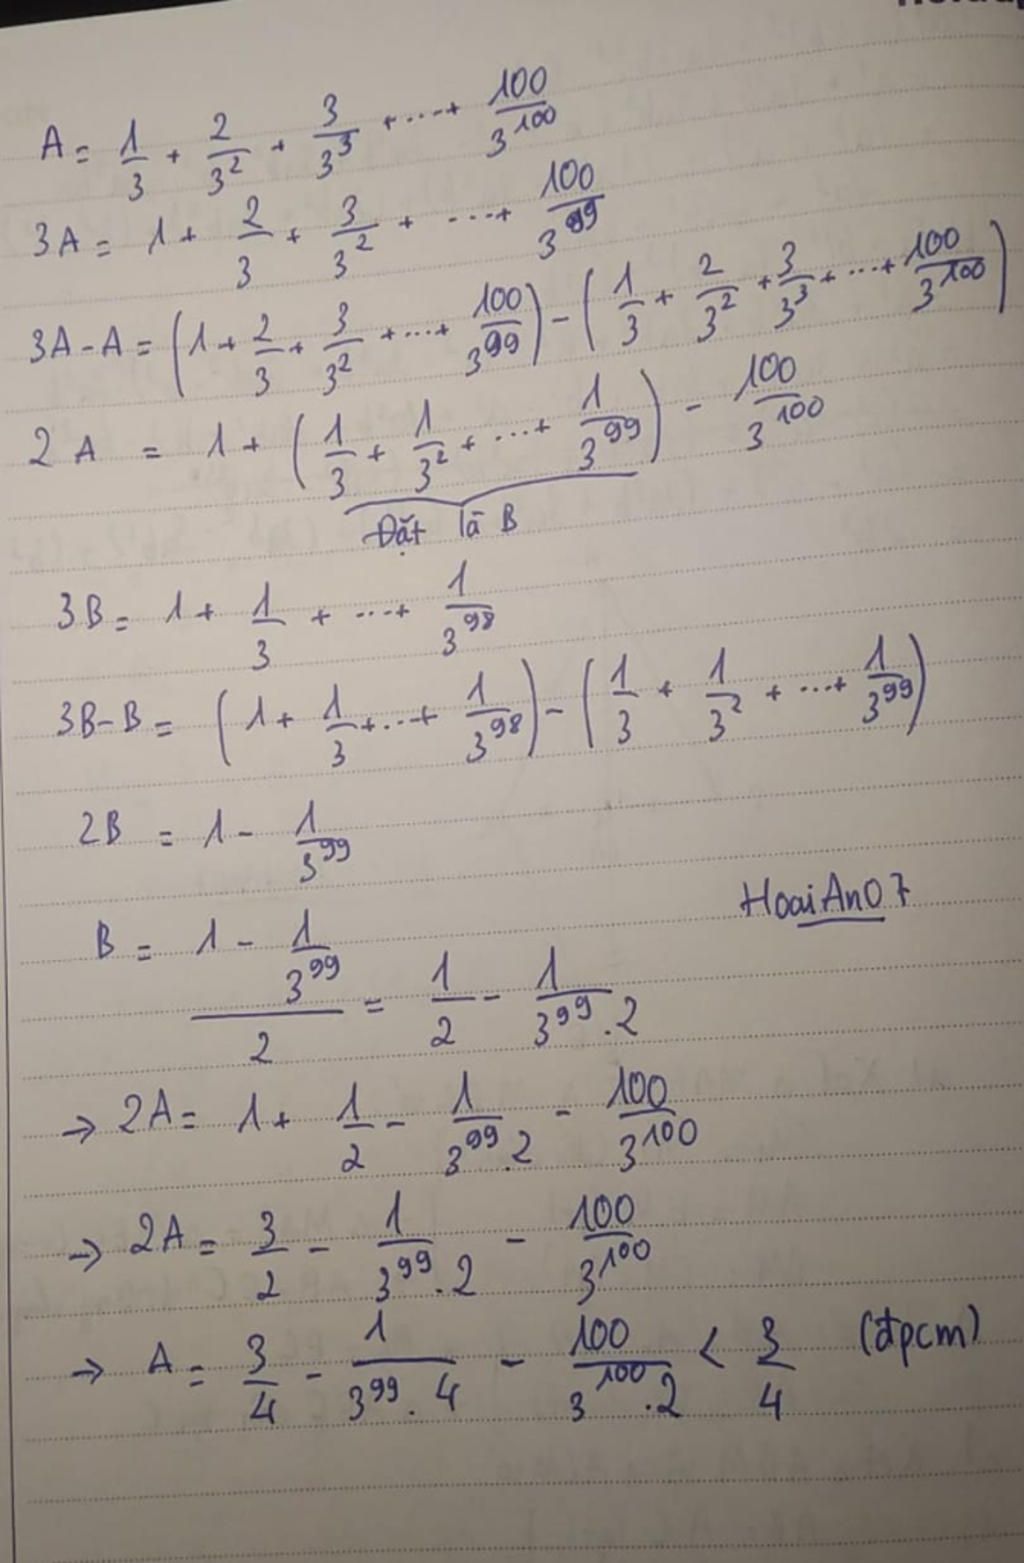 A = 1/3 + 2/3^2 + 3/3^3 + ... + 100/3^100
3A = 1 + 2/3 + 3/3^2 + ... + 100/3^99
3A - A = (1 + 2/3 + 3/3^2 + ... + 100/3^99) - (1/3 + 2/3^2 + 3/3^3 + ... + 100/3^100)
2A = 1 + (1/3 + 1/3^2 + ... + 1/3^99) - 100/3^100
Đặt là B
3B = 1 + 1/3 + ... + 1/3^98
3B - B = (1 + 1/3 + ... + 1/3^98) - (1/3 + 1/3^2 + ... + 1/3^99)
2B = 1 - 1/3^99
HoaiAn07
B = (1 - 1/3^99)/2 = 1/2 - 1/(3^99 . 2)
→ 2A = 1 + 1/2 - 1/(3^99 . 2) - 100/3^100
→ 2A = 3/2 - 1/(3^99 . 2) - 100/3^100
→ A = 3/4 - 1/(3^99 . 4) - 100/(3^100 . 2) < 3/4 (đpcm)